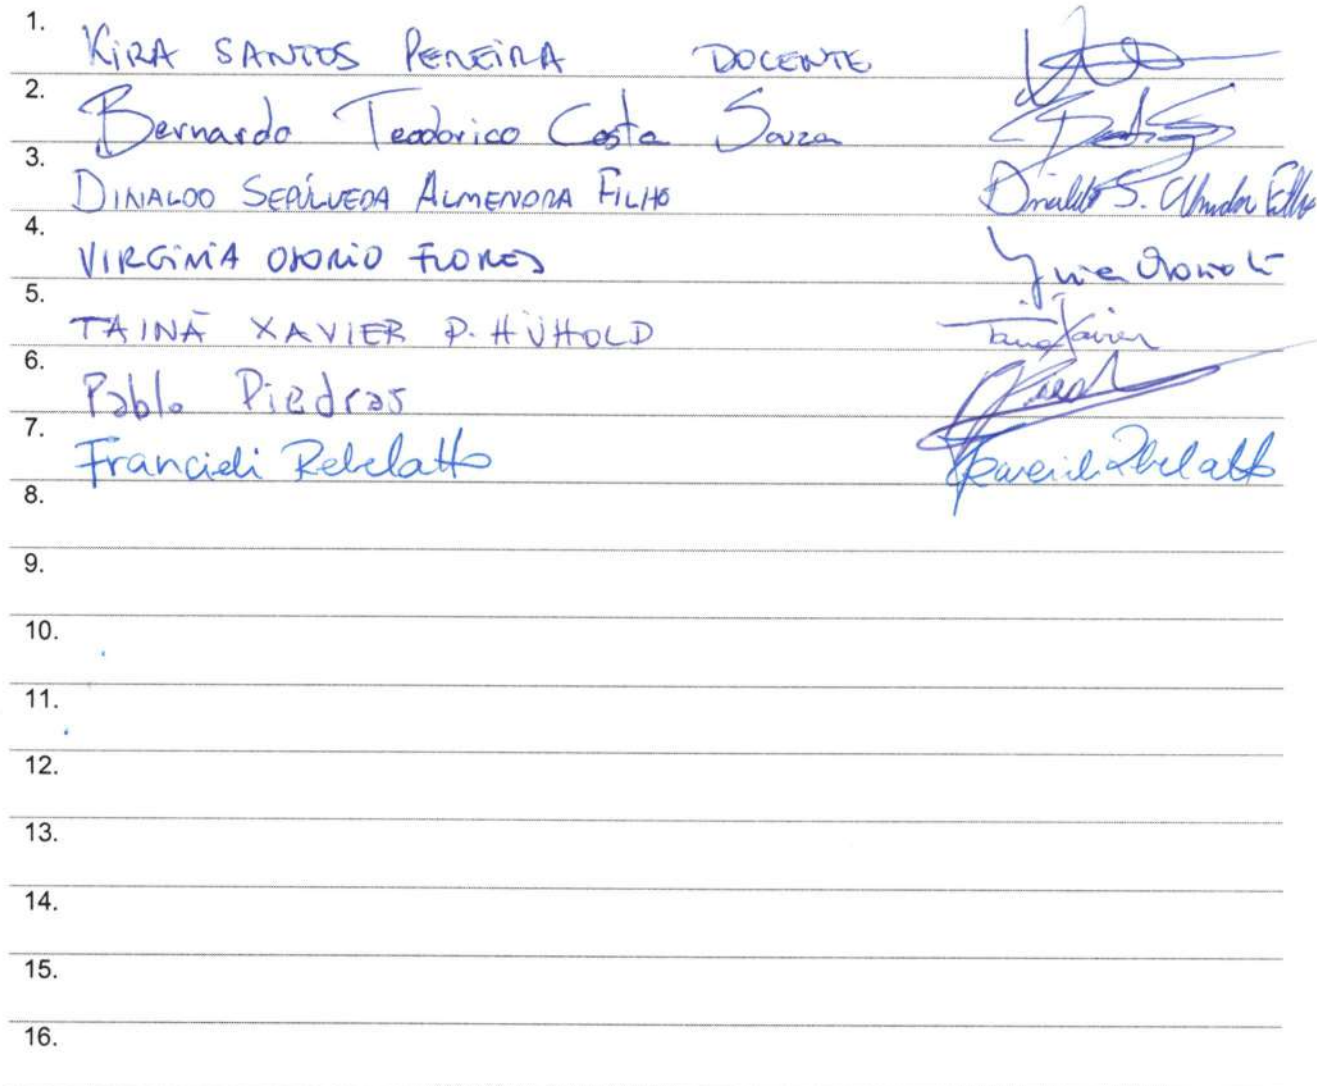 1. KIRA SANTOS PEREIRA DOCENTE
2. Bernardo Teodorico Costa Souza
3. DINALDO SEPÚLVEDA ALMENDRA FILHO Dinaldo S. Almendra Filho
4. VIRGINIA OSORIO FLORES
5. TAINÁ XAVIER P. HÜHOLD Tainá Xavier
6. Pablo Piedras
7. Francieli Rebelatto Francieli Rebelatto
8.
9.
10.
11.
12.
13.
14.
15.
16.